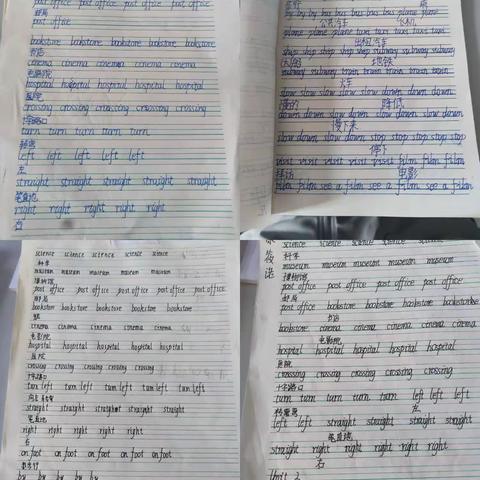 post office post office post office post office
邮局
post office
bookstore bookstore bookstore bookstore bookstore
书店
cinema cinema cinema cinema cinema
电影院
hospital hospital hospital hospital hospital
医院
crossing crossing crossing crossing crossing
十字路口
turn turn turn turn turn
转弯
left left left left left
左
straight straight straight straight straight
笔直地
right right right right right
右
by by by by bus bus bus bus plane plane
公共汽车 飞机
plane plane plane taxi taxi taxi taxi taxi
出租汽车
ship ship ship ship ship subway subway subway
地铁
subway subway train train train train
火车
slow slow slow slow slow down down down
慢的 降低
down down down slow down slow down
慢下来
slow down slow down stop stop stop stop stop
停下
visit visit visit visit visit film film film
拜访 电影
film film film see a film see a film
science science science science science
科学
museum museum museum museum museum
博物馆
post office post office post office post office post office
邮局
bookstore bookstore bookstore bookstore bookstore
cinema cinema cinema cinema cinema
电影院
hospital hospital hospital hospital hospital
医院
crossing crossing crossing crossing crossing
十字路口
turn left turn left turn left turn left turn left
straight straight straight straight straight
笔直地
right right right right right
右
on foot on foot on foot on foot on foot
by by by by by
science science science science science
科学
museum museum museum museum museum
博物馆
post office post office post office post office
邮局
post office bookstore bookstore bookstore
书店
bookstore cinema cinema cinema cinema cinema
电影院
hospital hospital hospital hospital hospital
医院
crossing crossing crossing crossing crossing
十字路口
turn turn turn turn turn left left left
左
left left straight straight straight straight
笔直地
straight right right right right right
右
Unit 2